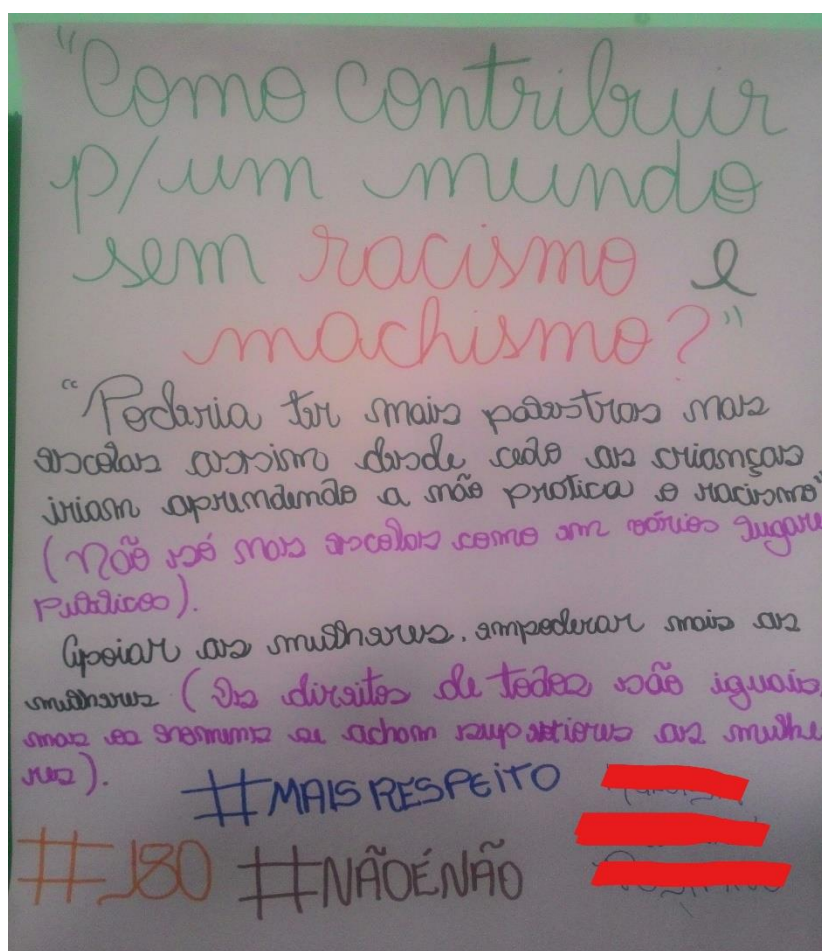 "Como contribuir
p/ um mundo
sem racismo e
machismo?"
"Poderia ter mais palestras nas
escolas assim desde cedo as crianças
iriam aprendendo a não pratica o racismo"
(Não só nas escolas como em vários lugare
Públicos).
Apoiar as mulheres, empoderar mais as
mulheres (Os direitos de todos são iguais,
mas os homens se acham superiores as mulhe
res).
#MAIS RESPEITO
#180 #NÃOÉNÃO